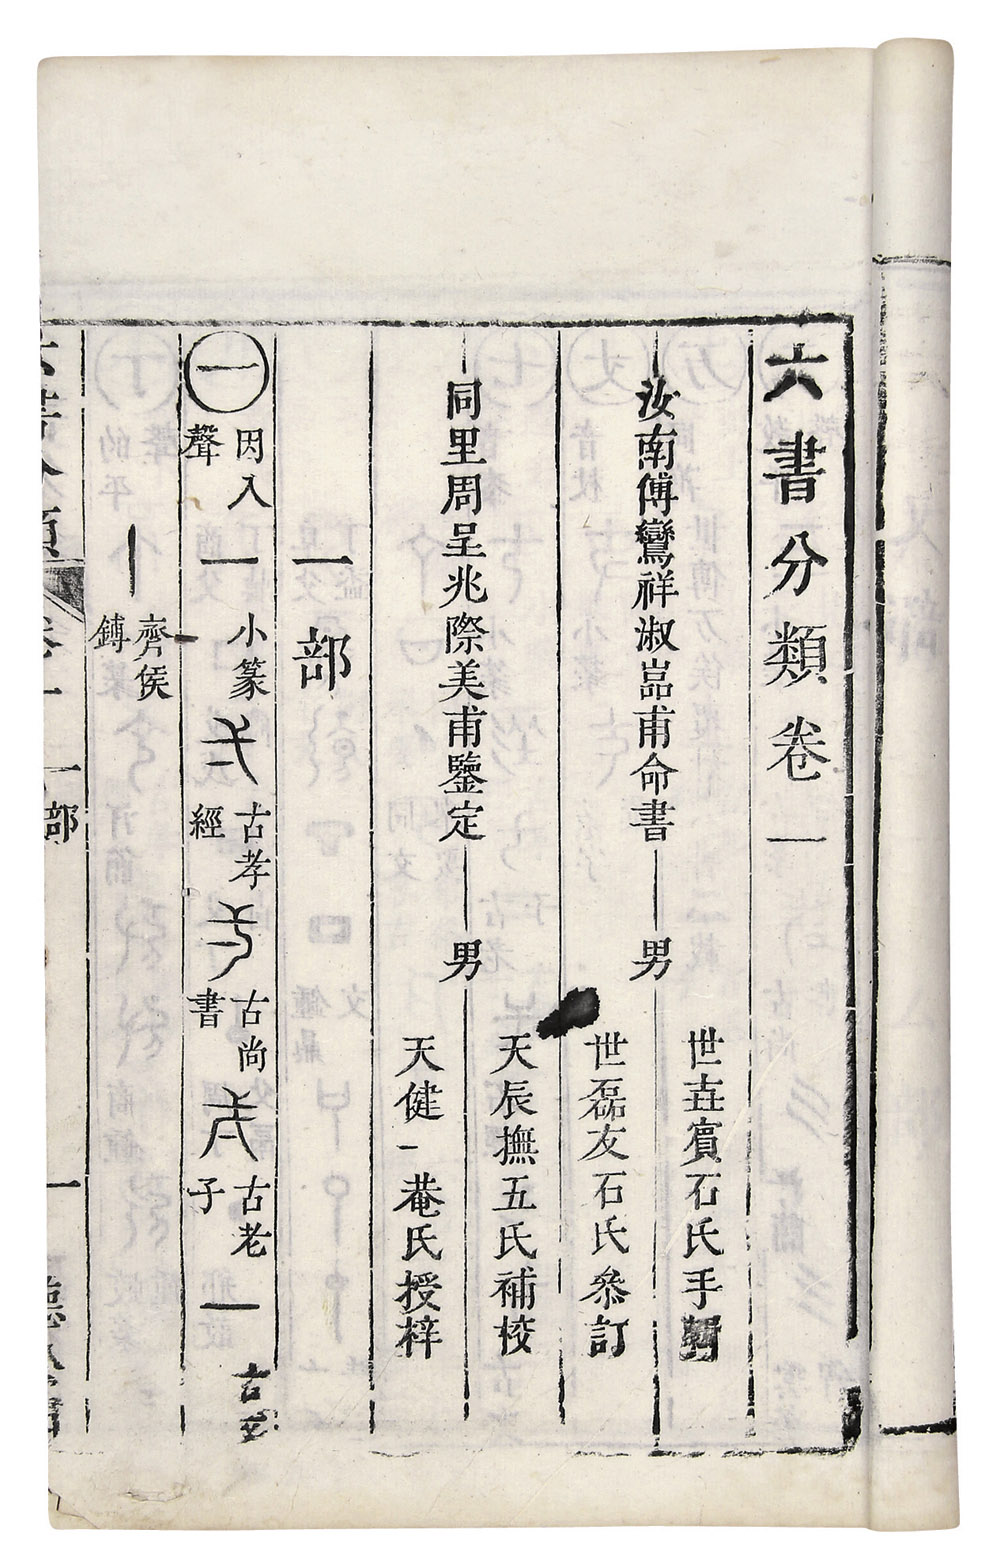 六書分類卷一
汝南傅鸞祥淑嵓甫命書
男
世垚賔石氏手輯
世磊友石氏叅訂
同里周呈兆際美甫鑒定
男
天辰撫五氏補校
天健一菴氏授梓
一部
一
因入聲
一
小篆
古孝經
古尚書
古老子
一
古文
齊侯鎛
一部
一